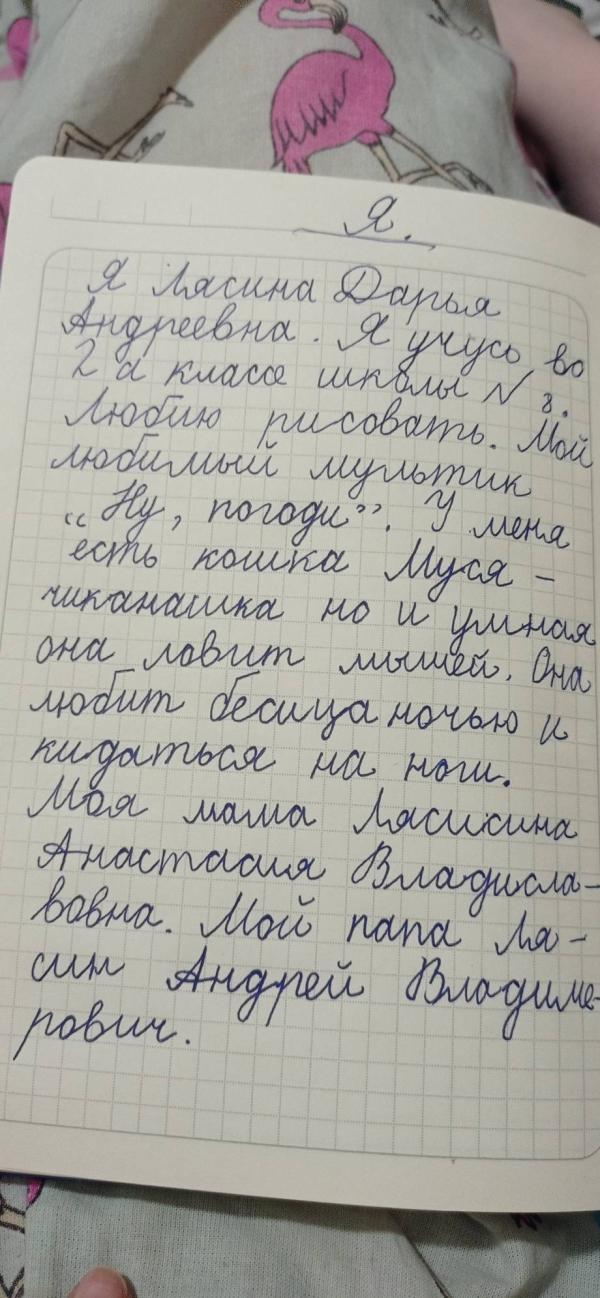 Я.
Я Лясина Дарья
Андреевна. Я учусь во
2 а классе школы N 8.
Люблю рисовать. Мой
любимый мультик
"Ну, погоди". У меня
есть кошка Муся -
чиканашка но и умная
она ловит мышей. Она
любит бесица ночью и
кидаться на ноги.
Моя мама Лясисина
Анастасия Владисла-
вовна. Мой папа Ля-
син Андрей Владиме-
рович.